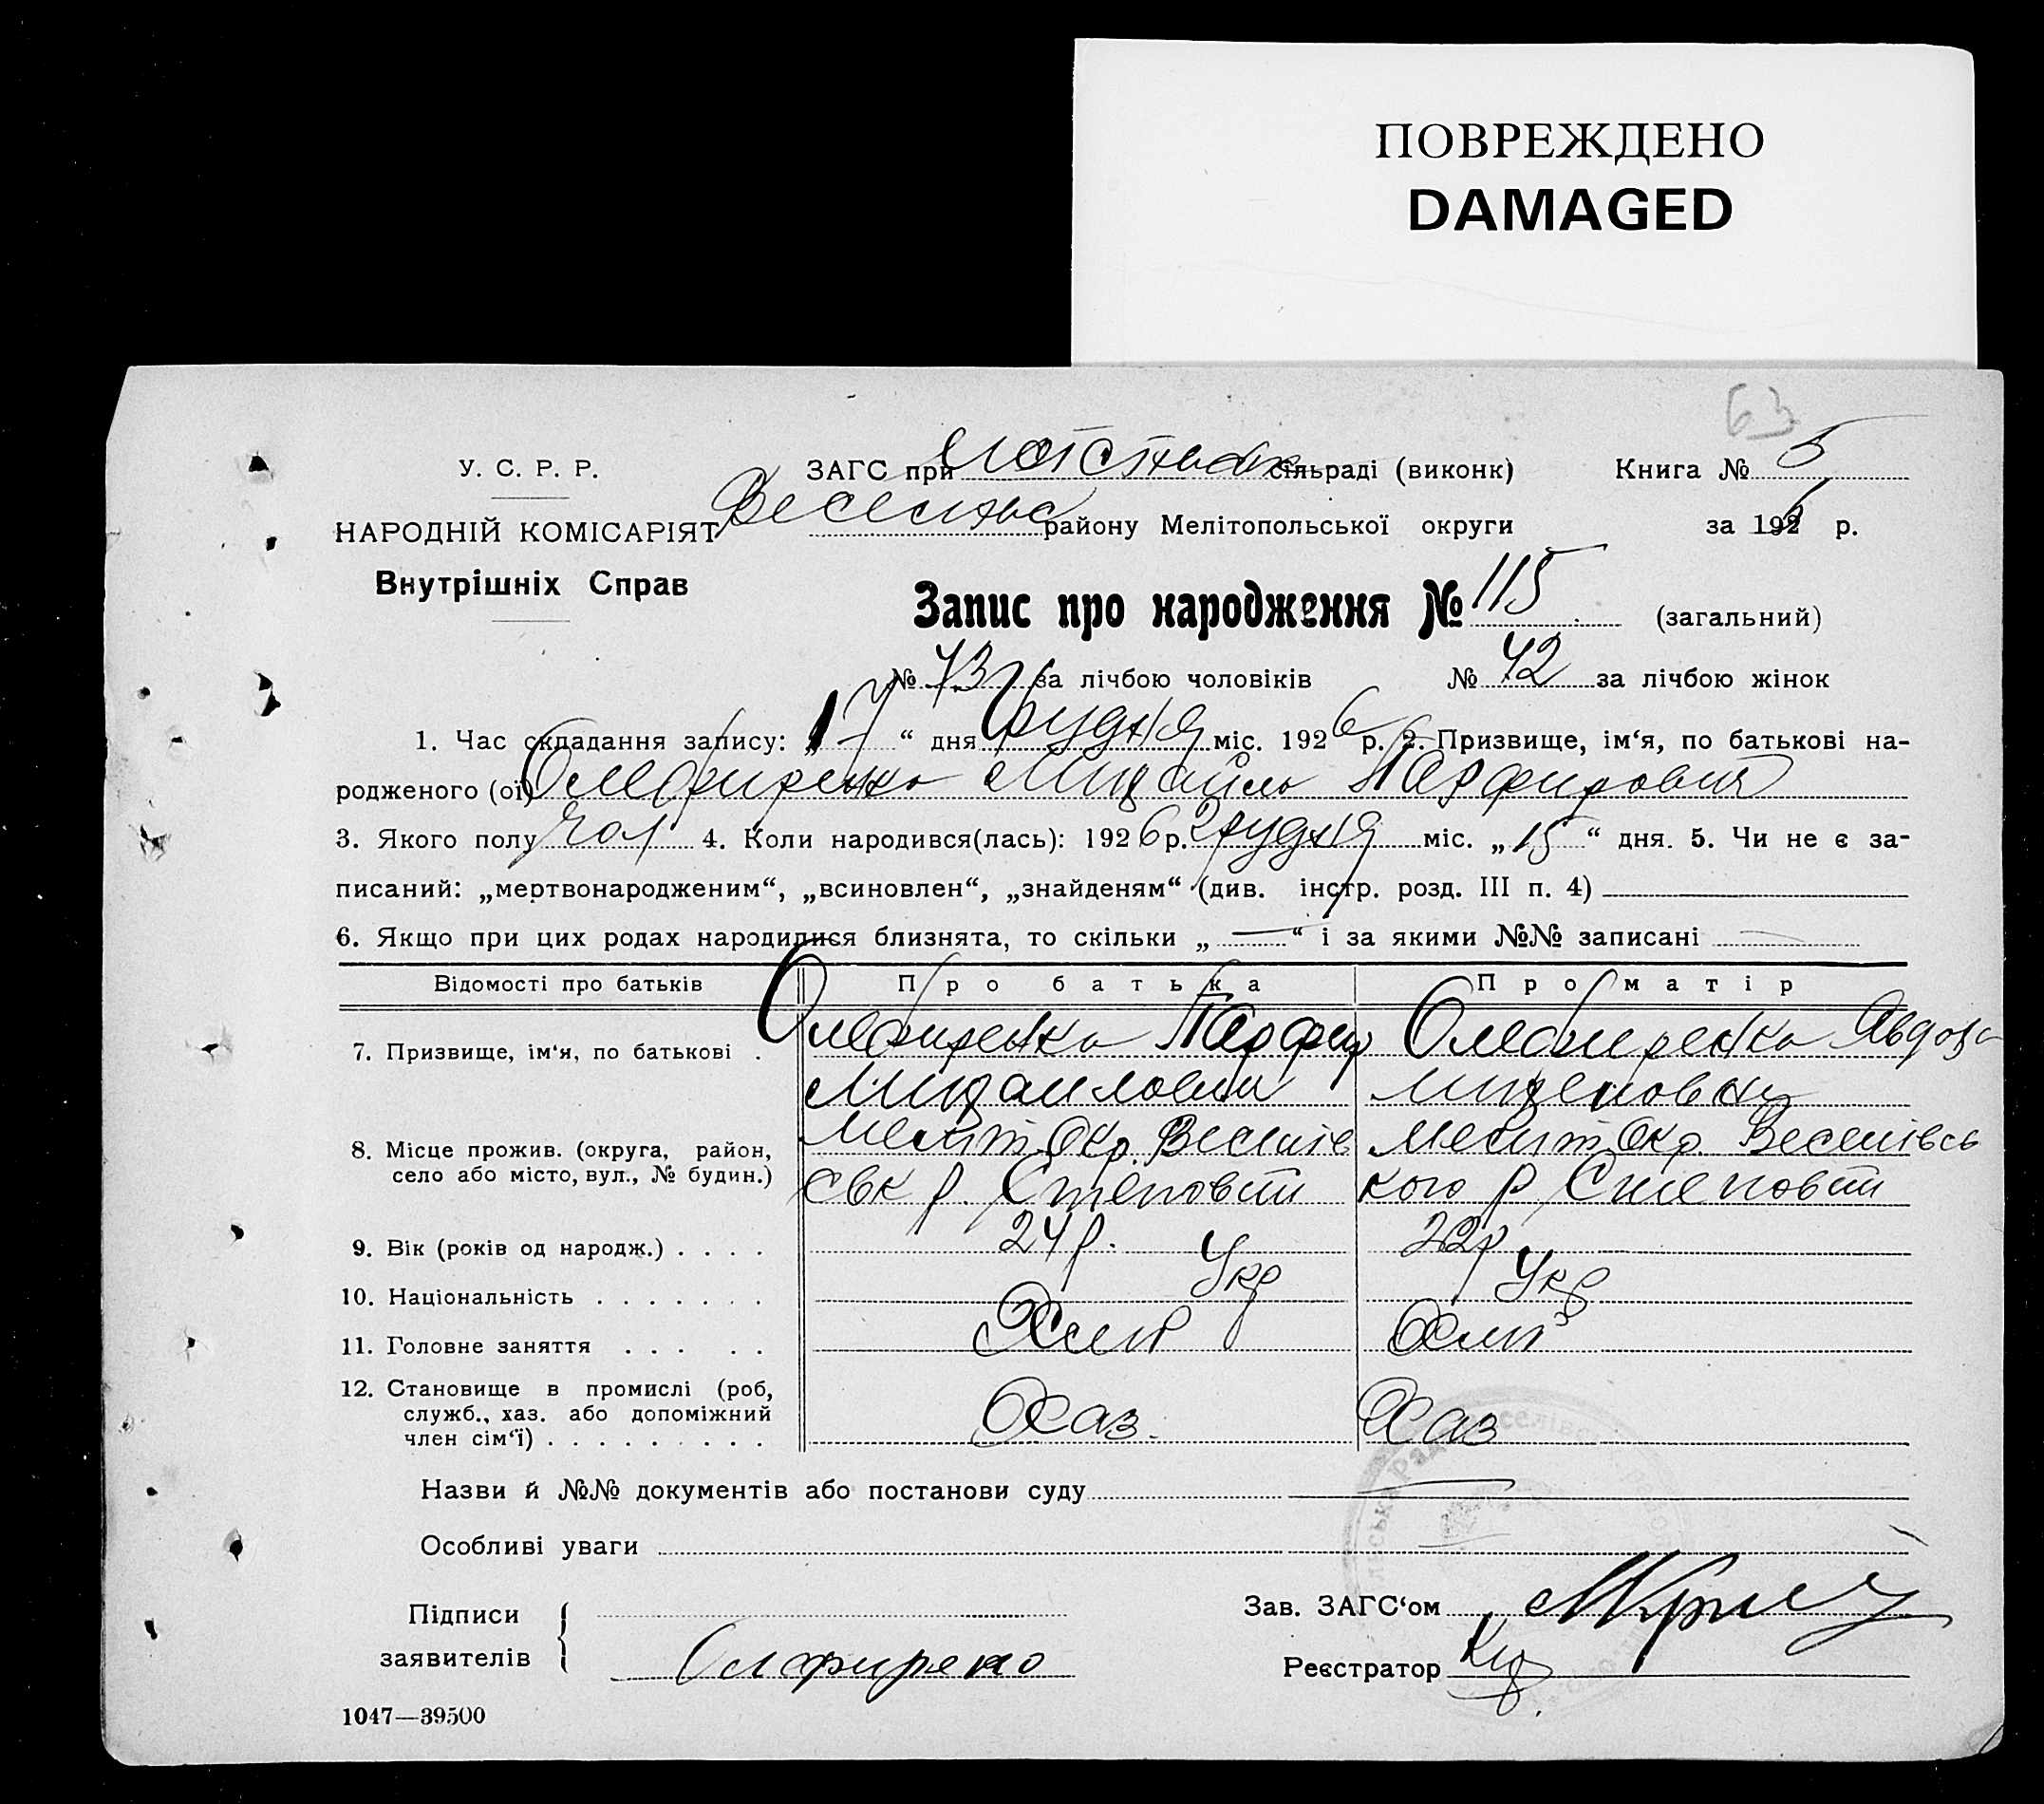 ПОВРЕЖДЕНО
DAMAGED
63
У. С. Р. Р. ЗАГС при сільраді (виконк) Книга № 5
НАРОДНІЙ КОМІСАРІЯТ району Мелітопольської округи за 1926 р.
Внутрішніх Справ
Запис про народження № 115 (загальний)
№ 73 за лічбою чоловіків № 42 за лічбою жінок
1. Час складання запису: „ 17 “ дня Грудня міс. 1926 р. 2. Призвище, ім‘я, по батькові на-
родженого (ої) Олефиренко Михайло Парфирович
3. Якого полу чол 4. Коли народився(лась): 1926 р. Грудня міс. „ 15 “ дня. 5. Чи не є за-
писаний: „мертвонародженим“, „всиновлен“, „знайденям“ (див. інстр. розд. III п. 4)
6. Якщо при цих родах народилися близнята, то скільки „ — “ і за якими №№ записані —
Відомості про батьків Про батька Про матір
7. Призвище, ім‘я, по батькові . Олефиренко Парфир Олефиренко
Михаилович
8. Місце прожив. (округа, район, Меліт. Окр. Меліт Окр. Веселівсь
село або місто, вул., № будин.) р. Степовий кого р Степовий
9. Вік (років од народж.) . . . . 24 р. 22 р
10. Національність . . . . . . . Укр Укр
11. Головне заняття . . . . . Хліб Хліб
12. Становище в промислі (роб,
служб., хаз. або допоміжний
член сім‘ї) . . . . . . . . . Хаз. Хаз
Назви й №№ документів або постанови суду —
Особливі уваги
Підписи Зав. ЗАГС‘ом
заявителів Реєстратор
1047—39500